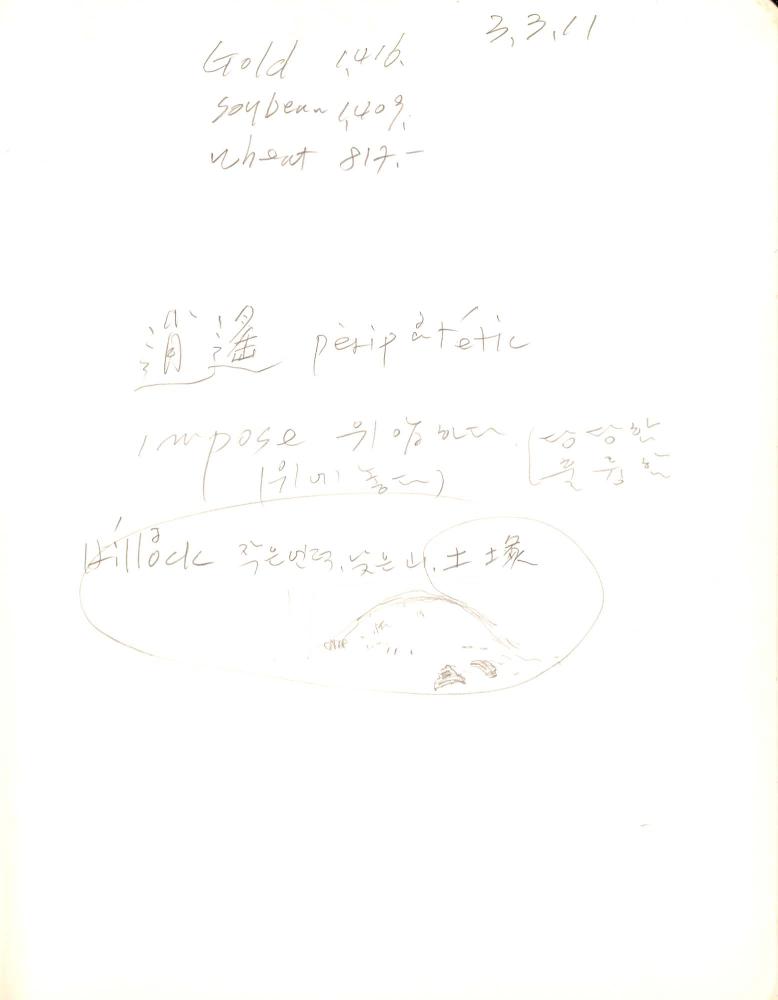 3, 3, 11
Gold 1,416.
soybean 1,409.
wheat 817.-
逍遙 peripatetic
impose 위하다 (당당한
(위에 놓다) 훌륭한
Hillock 작은 언덕, 낮은 산, 土塚